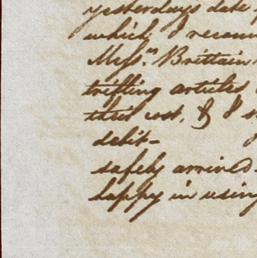 yesterdays date
which I
Mess.rs Brittain
trifling articles
their cost, & I
debit-
safely arrived
happy in using